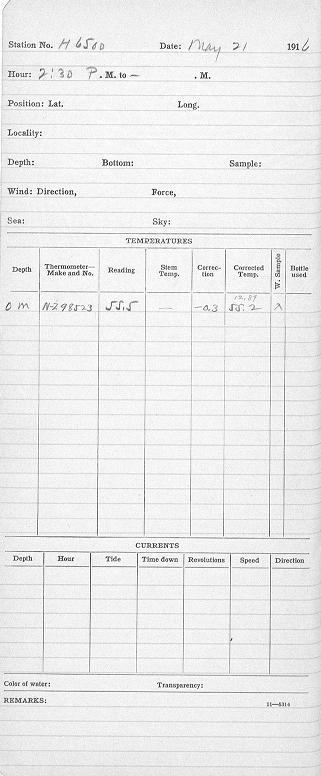 Station No. H 6500 Date: May 21 1916
Hour: 2:30 P. M. to — . M.
Position: Lat. Long.
Locality:
Depth: Bottom: Sample:
Wind: Direction, Force,
Sea: Sky:
TEMPERATURES
Depth Thermometer—Make and No. Reading Stem Temp. Correction Corrected Temp. W. Sample Bottle used
12.89
0 m N-Z 98523 55.5 — -0.3 55.2 x
CURRENTS
Depth Hour Tide Time down Revolutions Speed Direction
Color of water: Transparency:
REMARKS: 11—5314